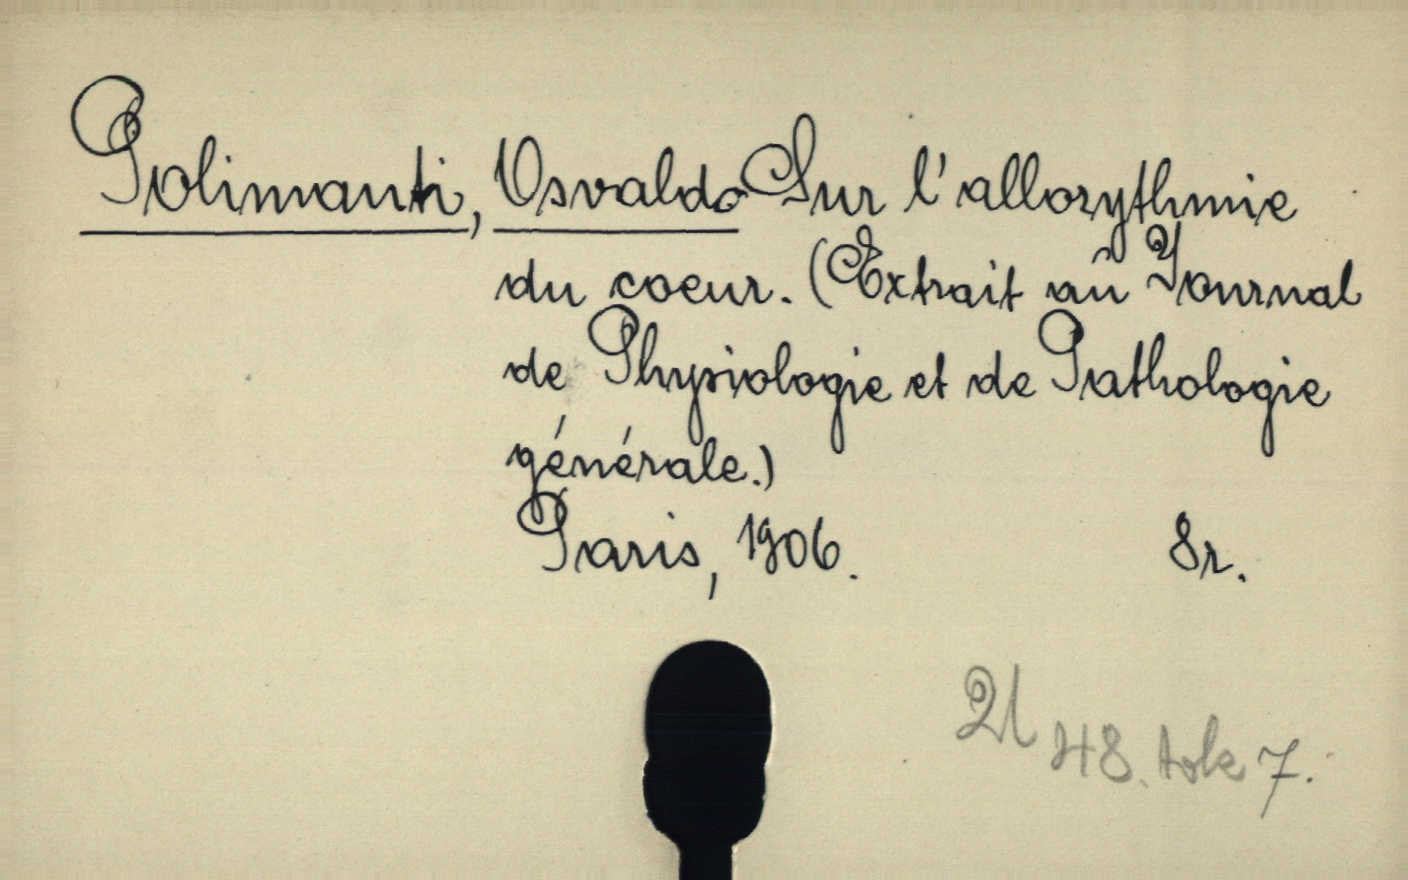 Polimanti, Osvaldo Sur l'allorythmie
du coeur. (Extrait au Journal
de Physiologie et de Pathologie
générale.)
Paris, 1906. 8r.
48. tok 7.